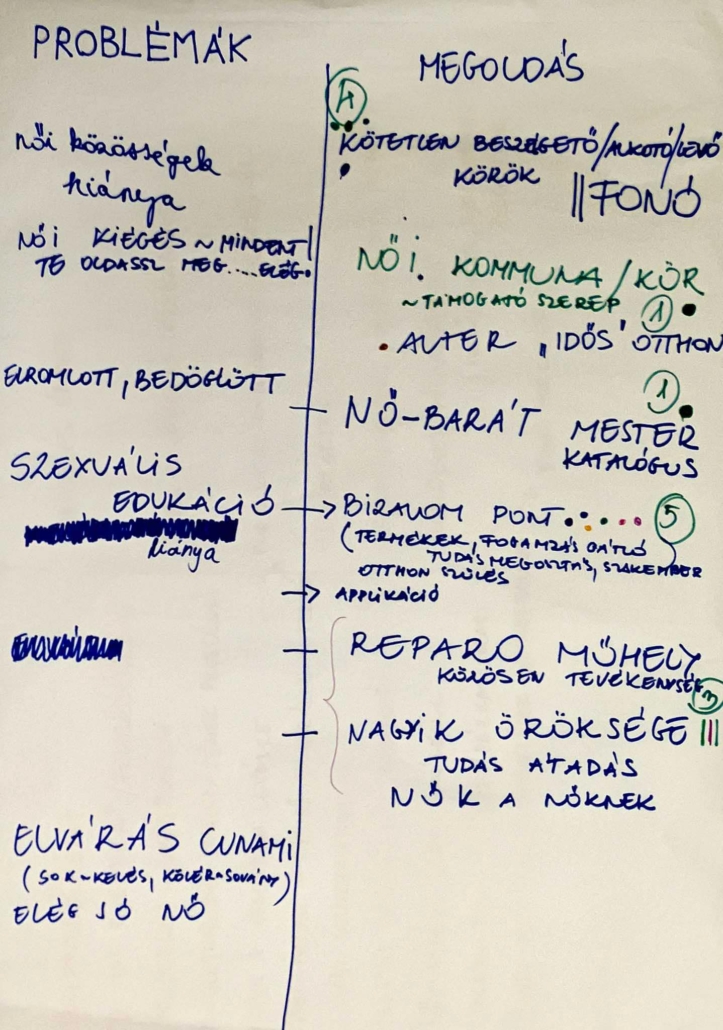 PROBLÉMÁK
női közösségek
hiánya
NŐI KIÉGÉS ~ MINDENT
TE OLDASSZ MEG.... ELÉG.
ELROMLOTT, BEDÖGLÖTT
SZEXUÁLIS
EDUKÁCIÓ
hiánya
ELVÁRÁS CUNAMI
(SOK-KEVÉS, KÖVÉR-SOVÁNY)
ELÉG JÓ NŐ
MEGOLDÁS
4
KÖTETLEN BESZÉGETŐ/ALKOTÓ/LEVŐ
KÖRÖK
||FONÓ
NŐI KOMMUNA/KÖR
~TÁMOGATÓ SZEREP
1
ALTER "IDŐS" OTTHON
1
NŐ-BARÁT MESTER
KATALÓGUS
BIZALOM PONT
5
(TERMÉKEK, FOGAMZÁS GÁTLÓ
TUDÁSMEGOSZTÁS, SZAKEMBER
OTTHON SZÜLÉS
APPLIKÁCIÓ
REPARO MŰHELY
KÖZÖSEN TEVÉKENYSÉG
3
NAGYIK ÖRÖKSÉGE |||
TUDÁS ÁTADÁS
NŐK A NŐKNEK